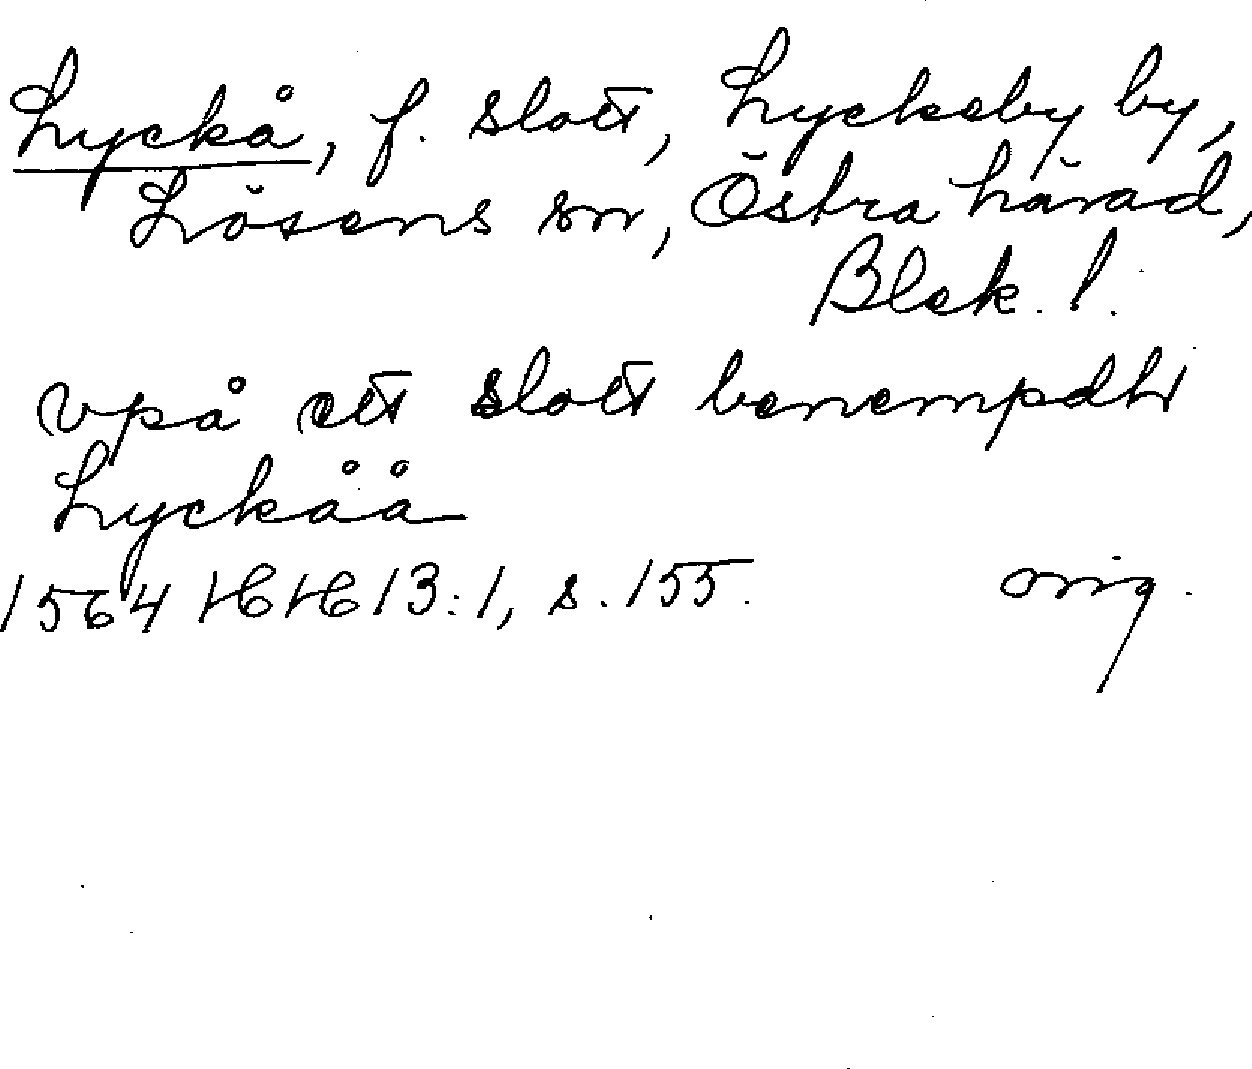 Lyckå, f. slott, Lyckeby by,
Lösens sn, Östra härad,
Blek. l.
vpå ett slott benempdht
Lyckåå
1564 HH 13:1, s. 155. orig.